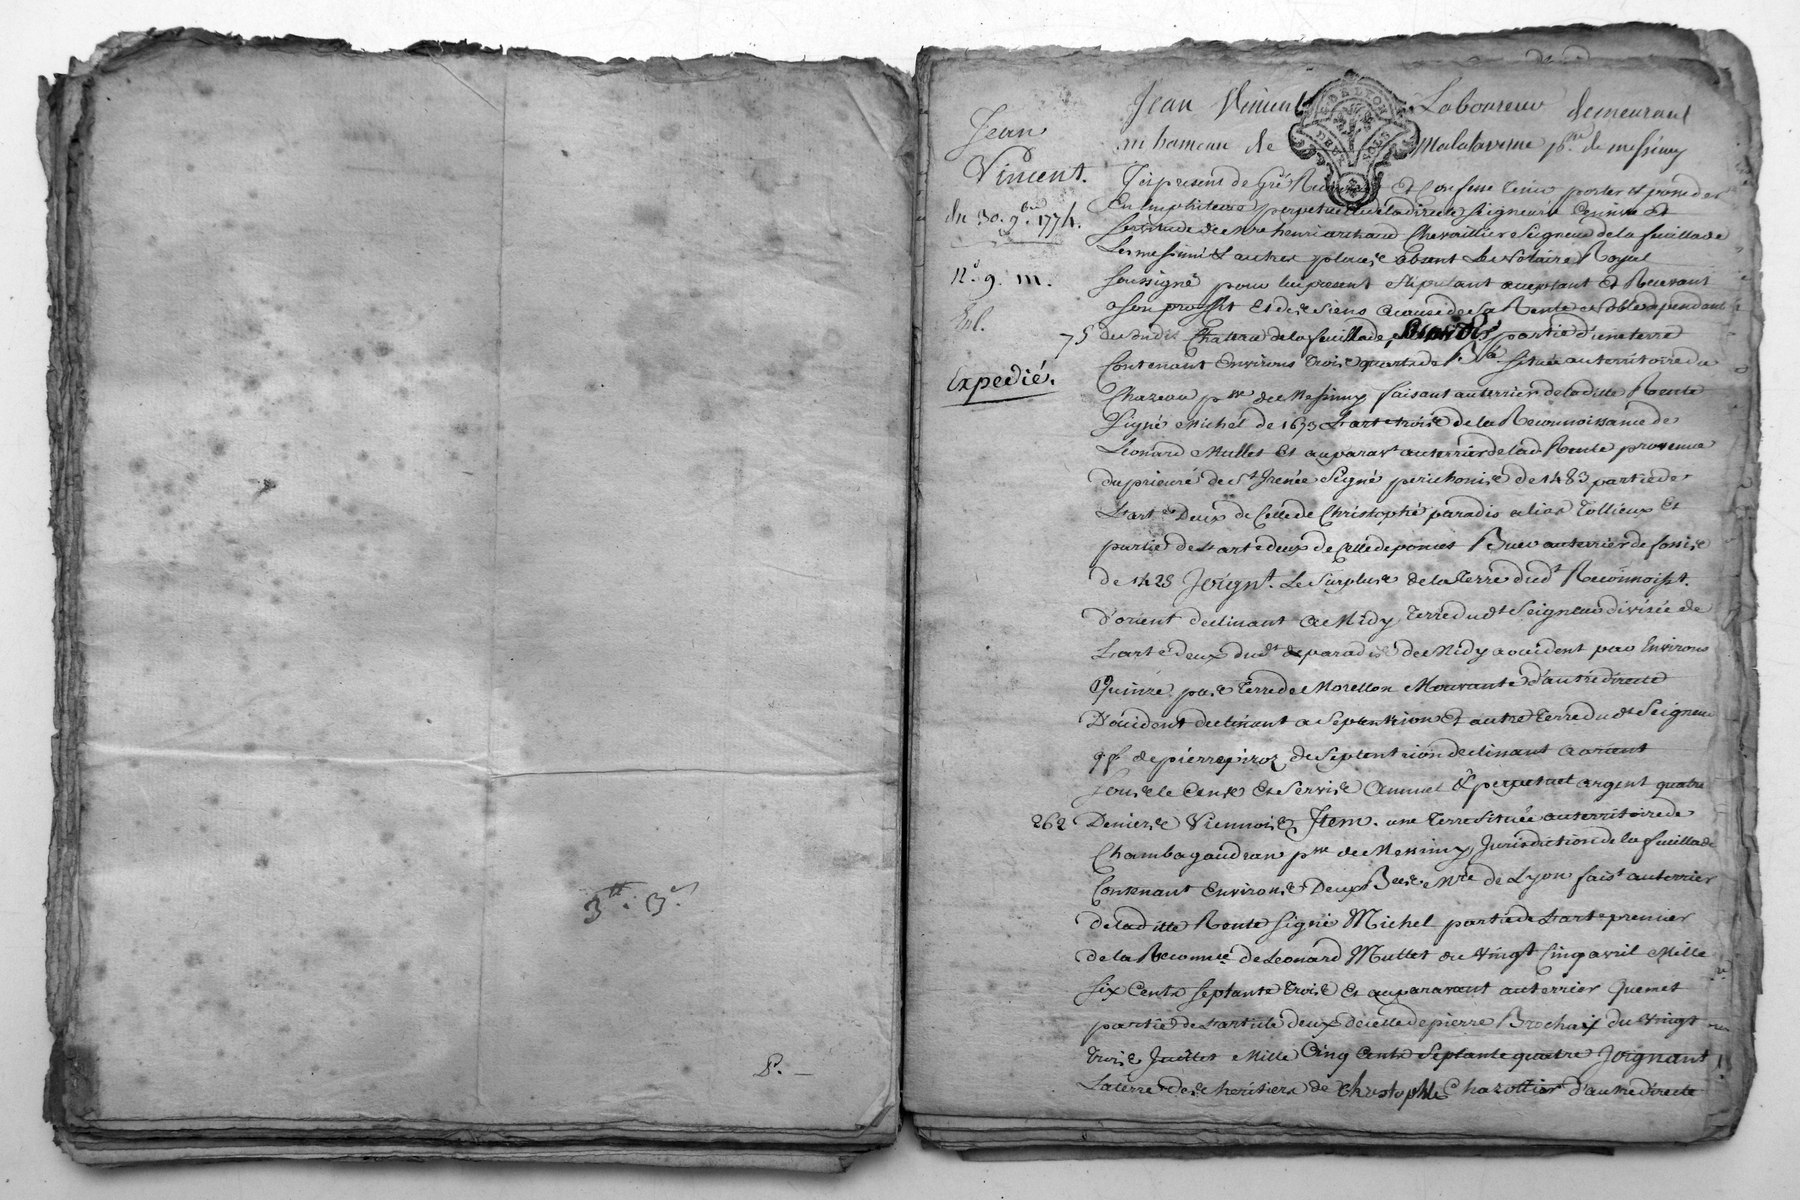 3# . 3s
P. —
Jean
Vincent.
du 30. 9bre 1774.
No. 9. m.
Expedié.
Jean Vincent Laboureur demeurant
au hameau de Malataverne psse. de messimy
GN. DE LYON
DEUX SOLS
Lequel present de Gré Reconnoit Et Confesse tenir porter et posseder
En Emphiteose perpetuelle de la directe Seigneurie Censive et
Servitude de Mre henri Chevaillier Seigneur de la feuillade
Les messimi & autres places absent Le Notaire Royal
Soussigné pour lui present Stipulant acceptant Et Recevant
a Son proffit Et des Siens a cause de sa Rente Noble dependant
75 de Sondit Chateau de la feuillade, partie d'une terre
Contenant Environs trois quarts de Bée Située au territoire du
Chazeau psse de Messimy faisant au terrier de laditte Rente
Signé Michel de 1673 L'art trois de la Reconnoissance de
Leonard Mullet Et auparavt au terrier de lad Rente provenue
du prieuré de St Irenée Signé perichonis de 1483 partie de
L'arte Deux de Celle de Christophé paradis alias Tollieux Et
partie de L'arte deux de Celle de ponet au terrier de
de 1425 Joignt. Le Surplus de la terre dudt Reconnoisst.
D'orient declinant a Midy, terre dudt Seigneur divisée de
L'arte deux dudt paradis de Midy a occident par Environs
Quinze pas terre de Morellon Mouvante d'autre directe
D'occident declinant a Septentrion Et autre terre dudt Seigneur
de pierre piroz de Septentrion declinant a orient
Sous le Cens Et Servis Annuel & perpetuel argent quatre
262 Deniers Viennois, Item. une terre Située au territoire de
Chambagaudran psse de Messimy, Jurisdiction de la feuillade
Contenant Environs Deux Bées Mre de Lyon faist au terrier
de laditte Rente Signé Michel partie de L'arte premier
de la Reconnce de Leonard Mullet du Vingt Cinq avril Mille
Six Cents Septante trois Et auparavant au terrier Quemet
partie de L'article deux de celle de pierre Brochaix du Vingt
trois Juillet Mille Cinq Cents Septante quatre Joignant
La terre des heritiers de Christophle Chazottier d'autre directe